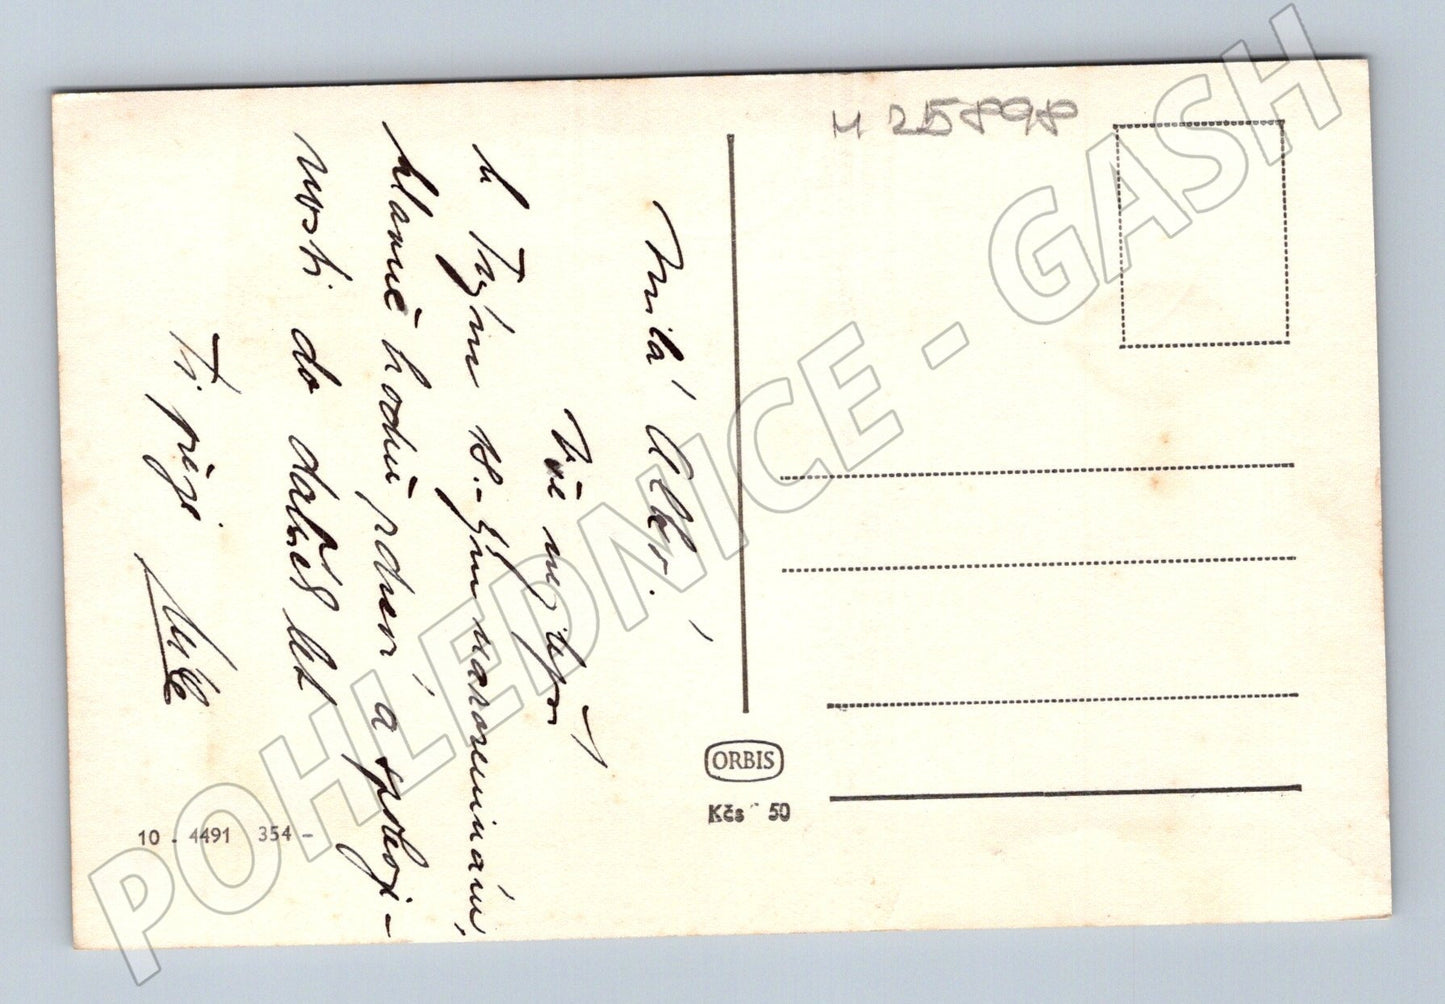 M 25898
Milá
Vše nejlepší
k Tvým 18.-tým narozeninám,
hlavně hodně zdraví a spokoji-
nosti do dalších let
Ti přeje
ORBIS
Kčs 50
10 - 4491 354 -
POHLEDNICE - GASH